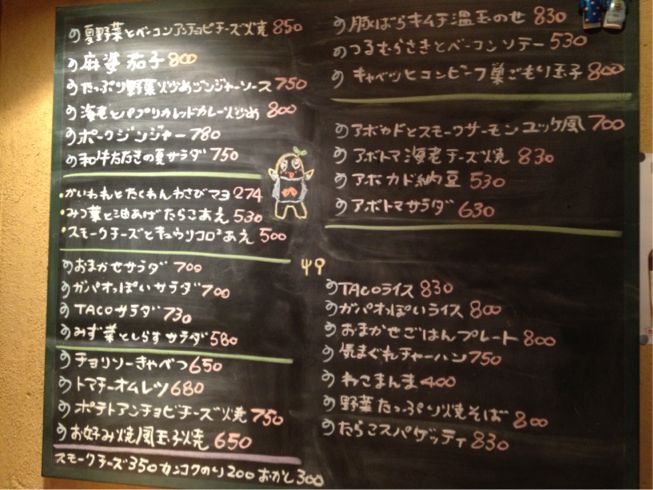 の夏野菜とベーコンアンチョビチーズ焼 850
の麻婆茄子 800
のたっぷり野菜炒めジンジャーソース 750
の海老とパプリカレッドカレー炒め 800
のポークジンジャー 780
の和牛たたきの夏サラダ 750
・かいわれとたくわんわさびマヨ 274
・みつ葉と油あげたらこあえ 530
・スモークチーズとキュウリコロコロあえ 500
のおまかせサラダ 700
のガパオっぽいサラダ 700
のTACOサラダ 730
のみず菜としらすサラダ 580
のチョリソーきゃべつ 650
のトマチーオムレツ 680
のポテトアンチョビチーズ焼 750
のお好み焼風玉子焼 650
スモークチーズ 350 カンコクのり 200 おかし 300
の豚ばらキムチ温玉のせ 830
のつるむらさきとベーコンソテー 530
のキャベツとコンビーフ巣ごもり玉子 800
のアボカドとスモークサーモンユッケ風 700
のアボトマ海老チーズ焼 830
のアボカド納豆 530
のアボトマサラダ 630
のTACOライス 830
のガパオっぽいライス 800
のおまかせごはんプレート 800
の気まぐれチャーハン 750
のねこまんま 400
の野菜たっぷり焼そば 800
のたらこスパゲッティ 830